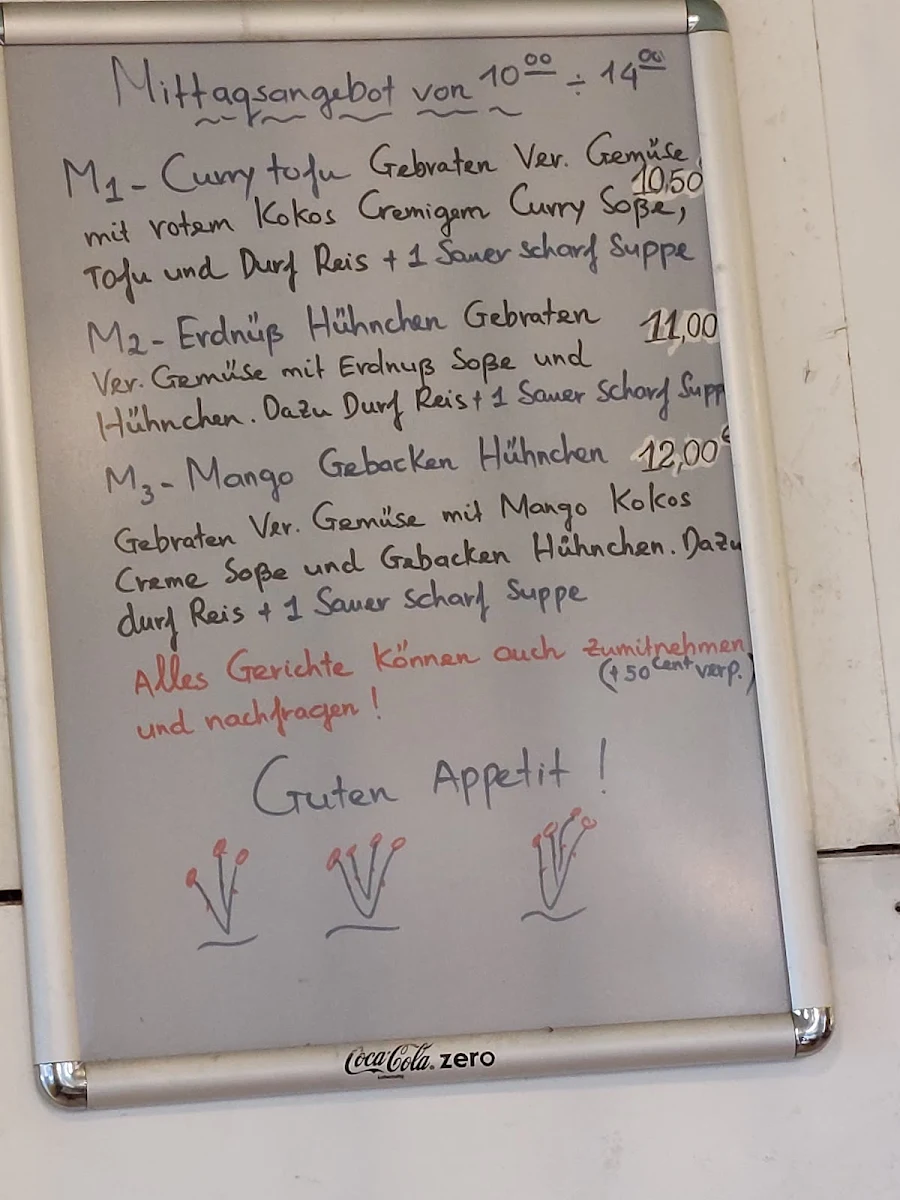 Mittagsangebot von 10⁰⁰ ÷ 14⁰⁰
M1 - Curry tofu Gebraten Ver. Gemüse
10,50
mit rotem Kokos Cremigem Curry Soße,
Tofu und Durf Reis + 1 Sauer scharf Suppe
M2 - Erdnüß Hühnchen Gebraten 11,00
Ver. Gemüse mit Erdnuß Soße und
Hühnchen. Dazu Durf Reis + 1 Sauer Scharf Supp
M3 - Mango Gebacken Hühnchen 12,00€
Gebraten Ver. Gemüse mit Mango Kokos
Creme Soße und Gebacken Hühnchen. Dazu
durf Reis + 1 Sauer scharf Suppe
Alles Gerichte können auch zumitnehmen
(+ 50 Cent verp.)
und nachfragen!
Guten Appetit!
Coca-Cola. zero